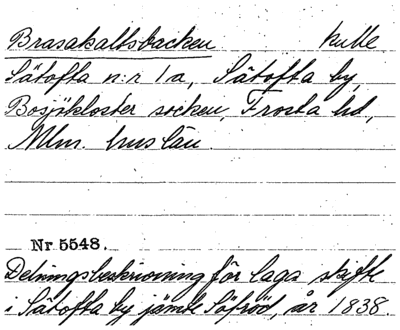 Brasakallsbacken kulle
Sätofta n:r 1a, Sätofta by,
Bosjökloster socken, Frosta hd,
Mlm. hus län.
Nr. 5548.
Delningsbeskrivning för laga skifte
i Sätofta by jämte Söfröd, år 1838.